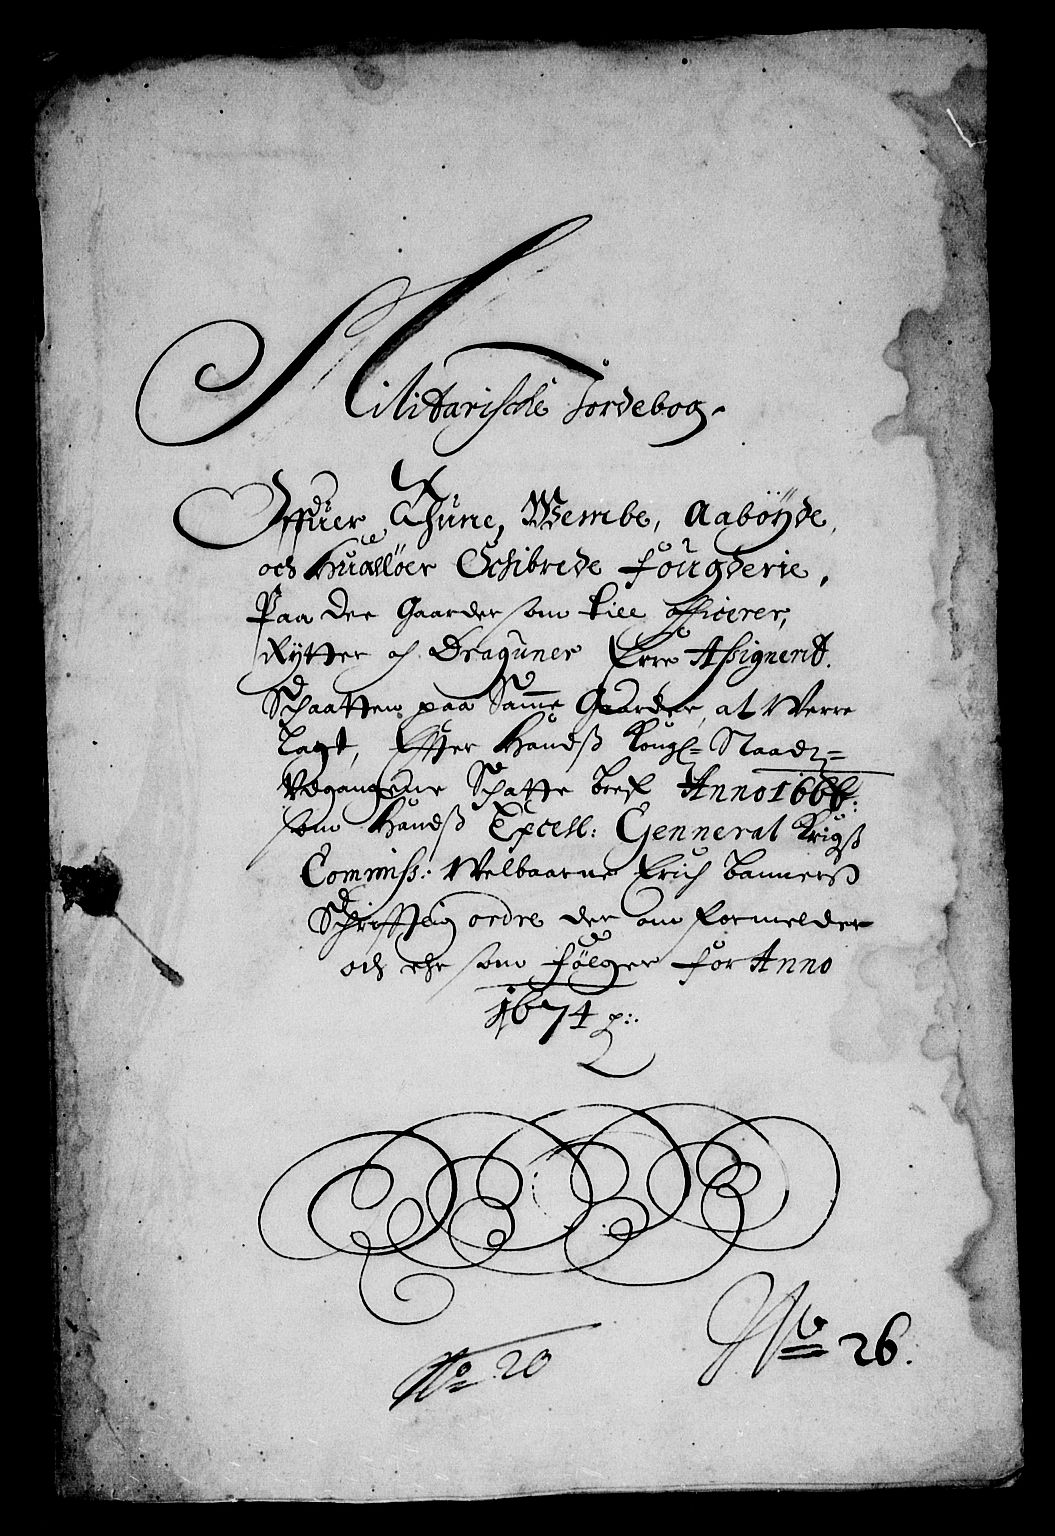 Militarische Jordebog.
Offuer Thune, Wembe, Aabøyde,
och Hualløer Schibrede fougderie,
Paa der Gaarder som till officerer,
Rytter och Dragúner Erre Assignerit.
Schaatten paa Samme Gaarder, at Werre
Lagt, Effter Handß Kongl: Naadz=
Vdgangene Schatte breff Anno 1666:
som Handß Excell: Gennerat Krigß
Commiss: Welbaarne Erich Bannerß
Schrifftlig ordre der om formelder
och ehr som følger for Anno
1674 p:.
No 20
No 26.